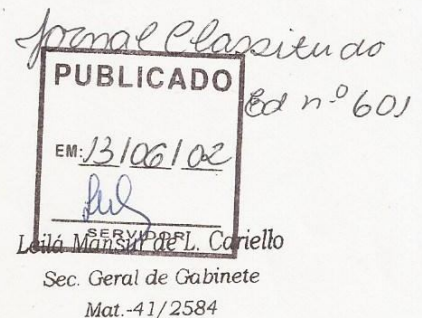 Jornal Classitudo
PUBLICADO
Ed nº 601
EM: 13/06/02
SERVIDOR
Leilá Mansur de L. Cariello
Sec. Geral de Gabinete
Mat.-41/2584